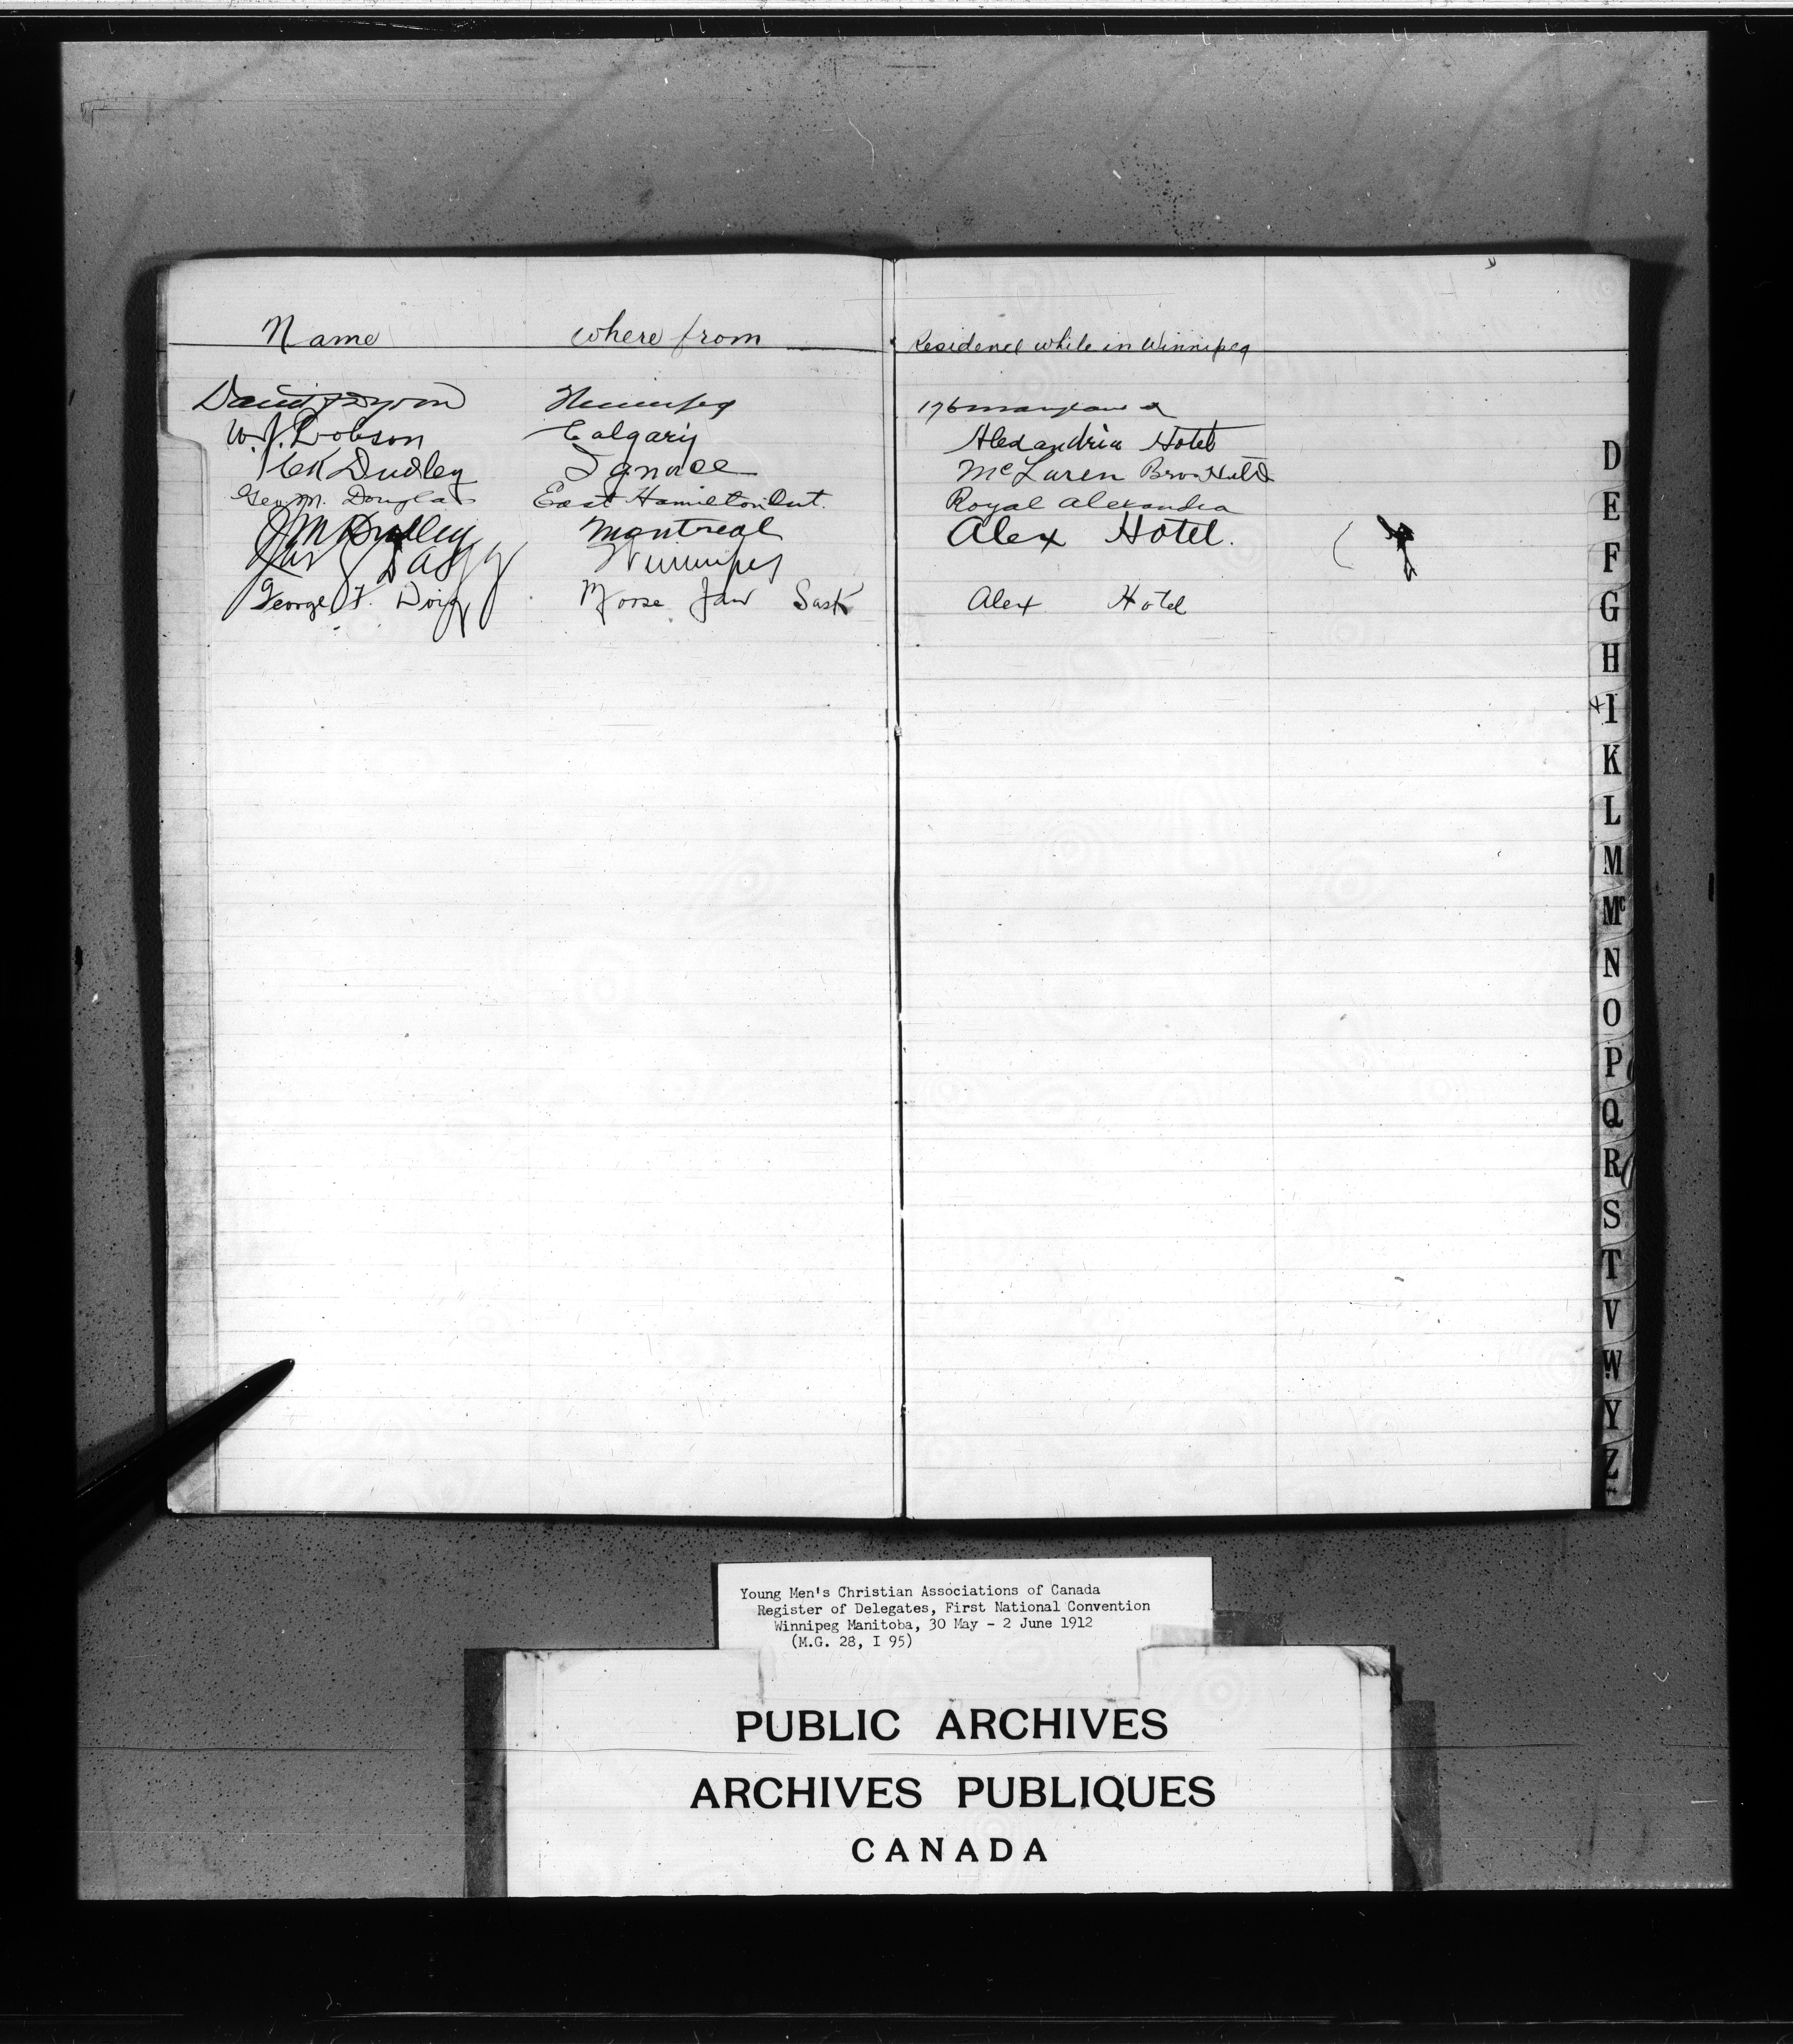 Name where from Residence while in Winnipeg
David Dyson Winnipeg 176
W.J. Dobson Calgary Alexandria Hotel
Dudley Ignace McLaren Bros Hotel
Geo. M. Douglas East Hamilton Ont. Royal Alexandra
Dudley Montreal Alex Hotel.
Jas Dagg Winnipeg
George F. Doig Moose Jaw Sask Alex Hotel
D
E
F
G
H
I
K
L
M
Mc
N
O
P
Q
R
S
T
V
W
Y
Z
Young Men's Christian Associations of Canada
Register of Delegates, First National Convention
Winnipeg Manitoba, 30 May - 2 June 1912
(M.G. 28, I 95)
PUBLIC ARCHIVES
ARCHIVES PUBLIQUES
CANADA